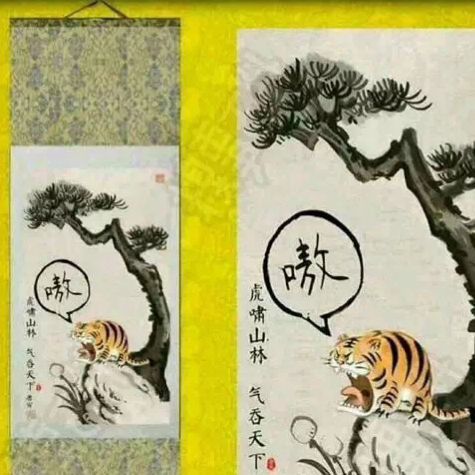 嗷
虎啸山林 气吞天下
嗷
虎啸山林 气吞天下